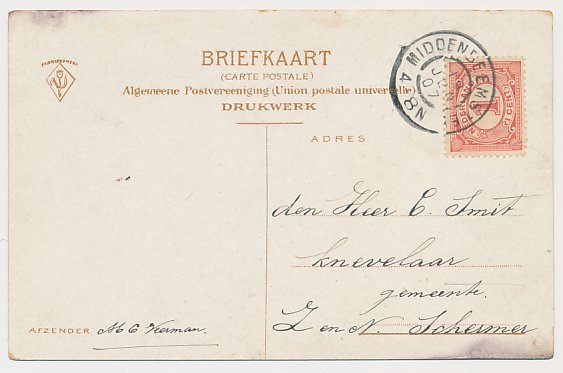 FABRIEKSMERK
BRIEFKAART
(CARTE POSTALE)
Algemeene Postvereeniging (Union postale universelle)
DRUKWERK
MIDDENBEEMSTER
4-8N
07
1
CENT
ADRES
den Heer C. Smit
knevelaar
gemeente.
Z en N. Schermer
AFZENDER
Veerman.